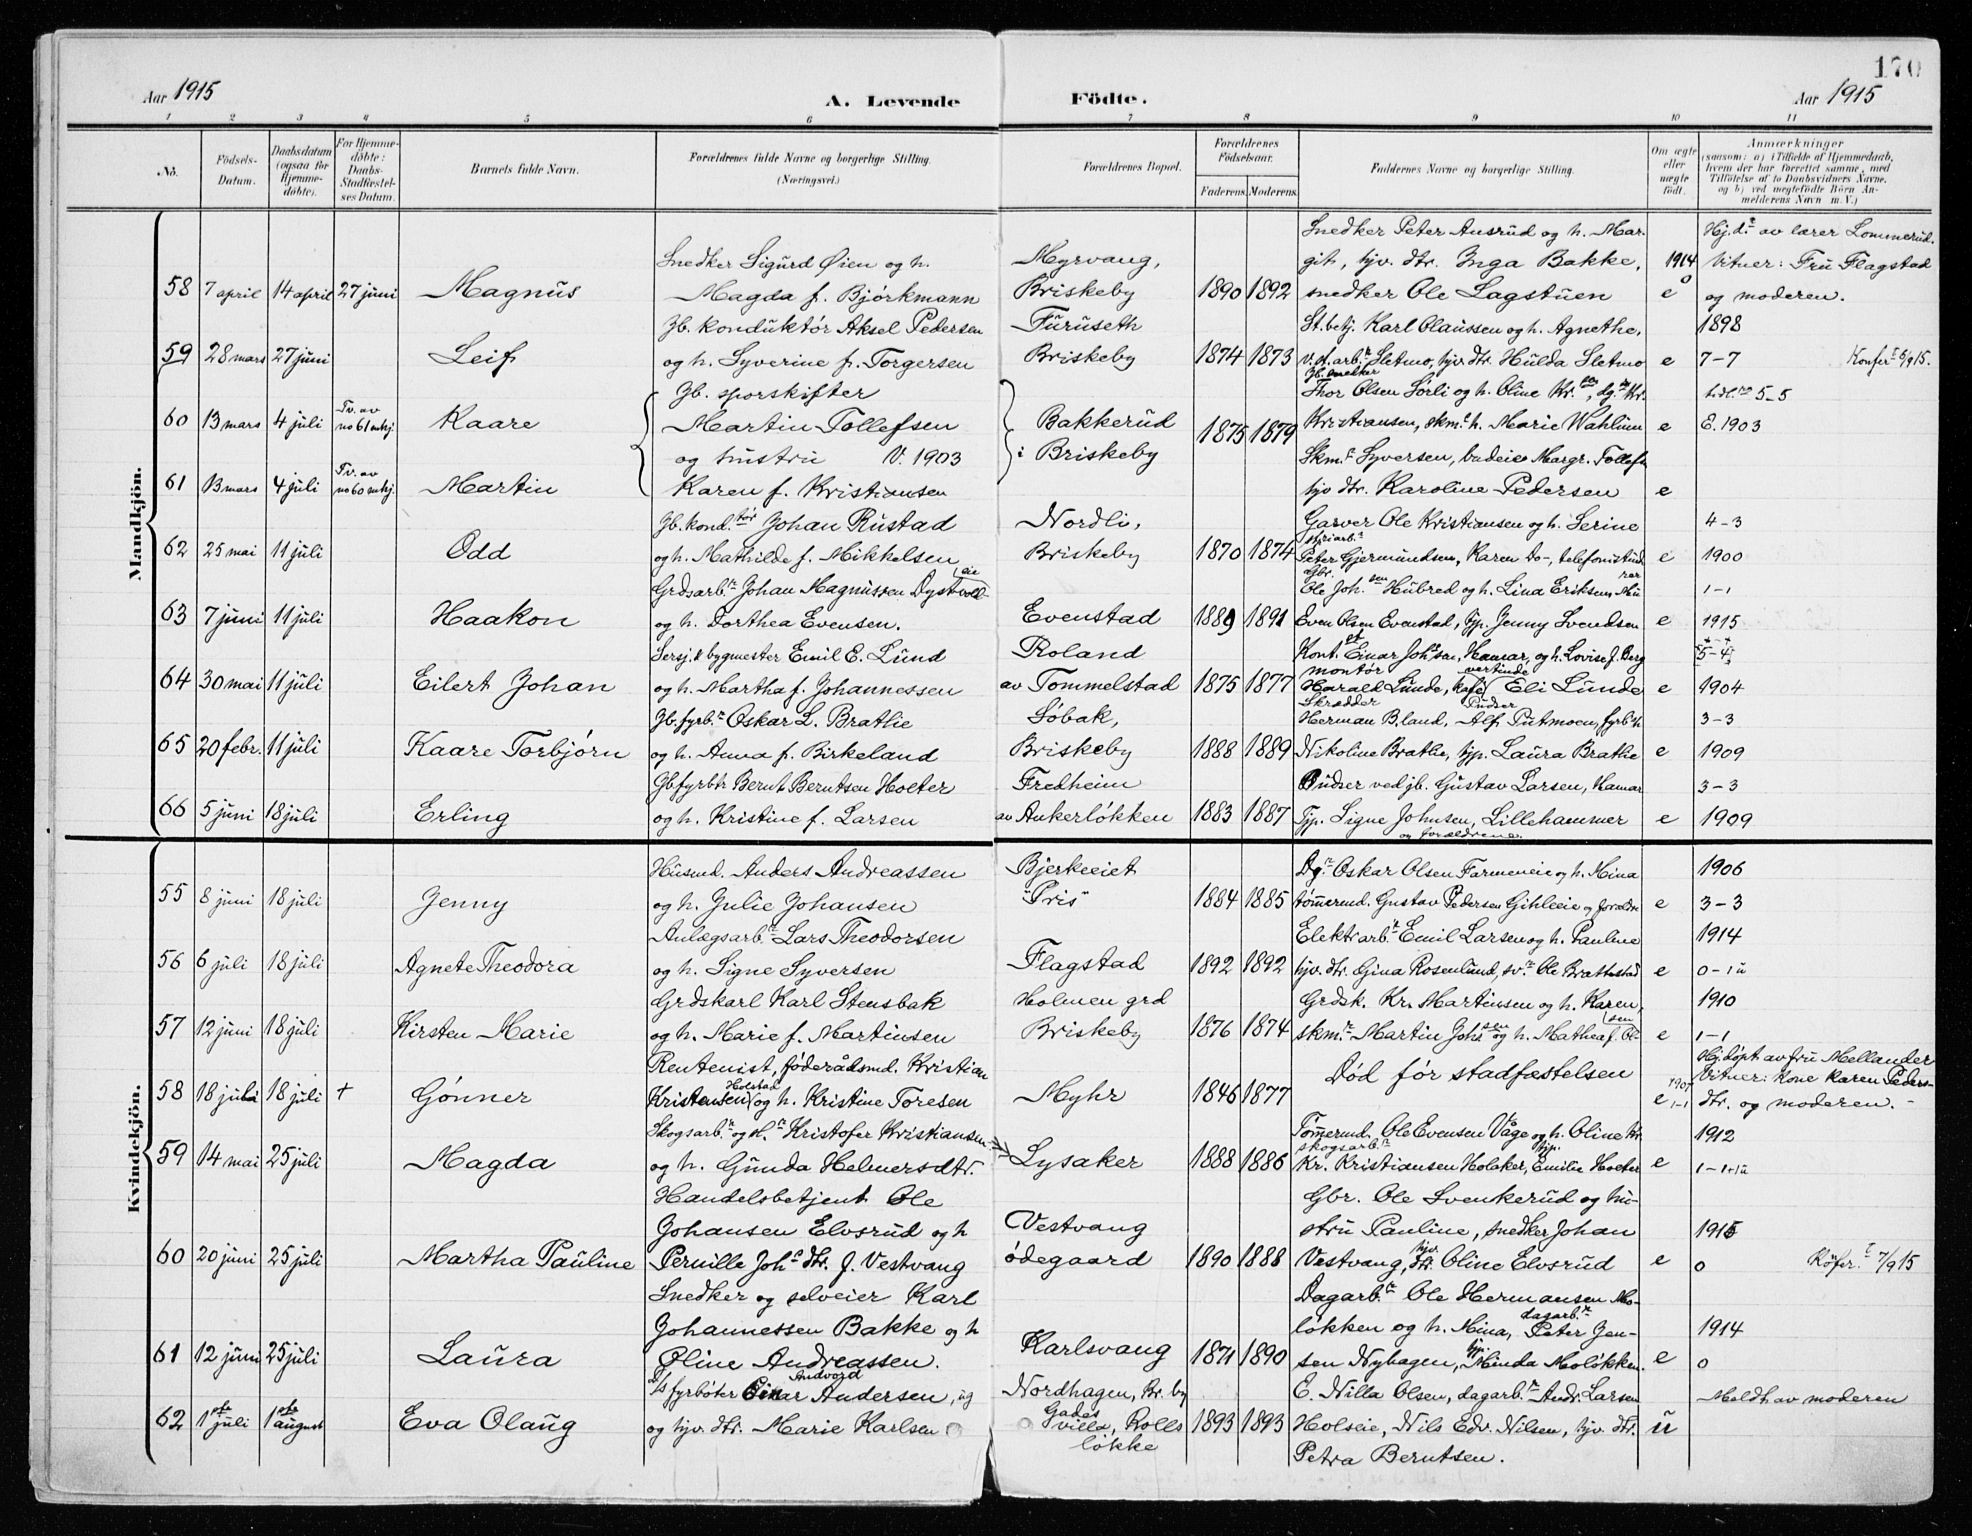 170
Aar 1915
A. Levende
Födte.
Aar 1915
1 2 3 4 5 6 7 8 9 10 11
No.
Födsels-Datum.
Daabsdatum (ogsaa for Hjemmedöbte).
For Hjemmedöbte: Daabs-Stadfæstelses Datum.
Barnets fulde Navn.
Forældrenes fulde Navne og borgerlige Stilling. (Næringsvei.)
Forældrenes Bopæl.
Forældrenes Födselsaar.
Faderens. Moderens.
Faddernes Navne og borgerlige Stilling.
Om ægte eller uægte födt.
Anmærkninger
(saasom: a) i Tilfælde af Hjemmedaab,
hvem der har forrettet samme, med
Tilföielse af to Daabsvidners Navne,
og b) ved uægtefödte Börn An-
melderens Navn m. V.)
Mandkjön.
Snedker Peter Ausrud og h. Mar-
Hj.d. av lærer Lommerud.
Snedker Sigurd Øien og h. Myrvang, git, hjv. dtr. Inga Bakke, 1914 Vitner: Fru Flagstad
58 7 april 14 april 27 juni Magnus Magda f. Bjørkmann Briskeby 1890 1892 snedker Ole Lagstuen e 0 og moderen.
Jb. konduktør Aksel Pedersen Furuseth St.betj. Karl Olaussen og h. Agnethe, 1898
59 28 mars 27 juni Leif og h. Syverine f. Torgersen Briskeby 1874 1873 Sletmo, hjv. dtr. Hulda Sletmo e 7-7 Konfer. 5/9 15.
Jb. sporskifter Thor Olsen Sørli og h. Oline 5-5
60 13 mars 4 juli Tv. av no 61 Kaare Martin Tollefsen Bakkerud 1875 1879 Kristiansen, h. Marie Wahlum e E. 1903
og hustru V. 1903 i Briskeby Skm. Syversen, budeie Margr. Tollefs.
61 13 mars 4 juli Tv. av no 60 Martin Karen f. Kristiansen hjv dtr. Karoline Pedersen e
Jb. kond.tør Johan Rustad Nordli, Garver Ole Kristiansen og h. Serine 4-3
62 25 mai 11 juli Odd og h. Mathilde f. Mikkelsen Briskeby 1870 1874 Peter Gjermundsen, Karen Do-, e 1900
Grdsarb. Johan Magnussen Dystvold- eie Gbr. Ole Joh.sen Hubred og h. Lina Eriksen 1-1
63 7 juni 11 juli Haakon og h. Dorthea Evensen. Evenstad 1889 1891 Even Olsen Evenstad, tjp. Jenny Svendsen e 1915
Sersj. & bygmester Emil E. Lund Roland Kont. Einar Joh.sen, Hamar, og h. Lovise f. Berg 5-4
64 30 mai 11 juli Eilert Johan og h. Martha f. Johannessen av Tommelstad 1875 1877 montør Harald Lunde, Eli Lunde e 1904
Jb. fyrb. Oskar L. Bratlie Søbak, Skrædder Herman B.land, Pudser Alf Putmoen, 3-3
65 20 febr. 11 juli Kaare Torbjørn og h. Anna f. Birkeland Briskeby 1888 1889 Nikoline Bratlie, tjp. Laura Bratlie e 1909
Jb. fyrbtr Bernt Berntsen Hoeter Fredheim Pudser ved jb. Gustav Larsen, Hamar 3-3
66 5 juni 18 juli Erling og h. Kristine f. Larsen av Ankerløkken 1883 1887 Tjp. Signe Johnsen, Lillehammer e 1909
og forældrene.
Kvindekjön.
Husmd. Anders Andreassen Bjerkeeiet Dg. Oskar Olsen Farmeneie og h. Mina 1906
55 8 juni 18 juli Jenny og h. Julie Johansen "Pris" 1884 1885 tømmermd. Gustav Pedersen Gihleeie og forældre e 3-3
Anlægsarb. Lars Theodorsen Elektrarb. Emil Larsen og h. Pauline 1914
56 6 juli 18 juli Agnete Theodora og h. Signe Syversen Flagstad 1892 1892 hjv. dtr. Gina Rosenlund, sv. Ole Brattestad e 0-1u
Grdskarl Karl Stensbak Holmen grd Grdsk. Kr. Martinsen og h. Karen, 1910
57 12 juni 18 juli Kirsten Marie og h. Marie f. Martinsen Briskeby 1876 1874 skm. Martin Joh.sen og h. Mathea f. Olsen e 1-1
Rentenist, føderådsmd. Kristian Hj.døpt av fru Mellander
58 18 juli 18 juli + Gønner Kristensen Holstad og h. Kristine Toresen Myhr 1846 1877 Død før stadfæstelsen e 1907 1-1 Vitner: Kone Karen Peders-
dtr. og moderen.-
Skogsarb. og Kristofer Kristiansen Tømmermd. Ole Evensen Våge og h. Oline 1912
59 14 mai 25 juli Magda og h. Gunda Helmersdtr. Lysaker 1888 1886 skogsarb. Kr. Kristiansen Holsker, tjp. Emilie Hoeter e 1-1+1u
Handelsbetjent Ole Gbr. Ole Svenkerud og hu-
Johansen Elvsrud og h Vestvang stru Pauline, snedker Johan 1915
60 20 juni 25 juli Martha Pauline Pernille Joh.dtr. f. Vestvang ødegaard 1890 1888 Vestvang, hjv. dtr. Oline Elvsrud e 0 7/9 15
Snedker og selveier Karl Dagarb. Ole Hermansen Mo-
Johannessen Bakke og h løkken og h. Mina, dagarb. Peter Jen- 1914
61 12 juni 25 juli Laura Oline Andreassen. Karlsvang 1871 1890 sen Nyhagen, tjp. Minda Moløkken. e 0
s/s fyrbøter Einar Andvord Andersen, ug Nordhagen, Br. by E. Nilla Olsen, dagarb. Andr. Larsen Meldt av moderen
62 1ste juli 1ste august Eva Olaug og hjv. dtr. Marie Karlsen Gades villa, Rolls 1893 1893 Holseie, Nils Edv. Nilsen, hjv. dtr. u
løkke Petra Berntsen.